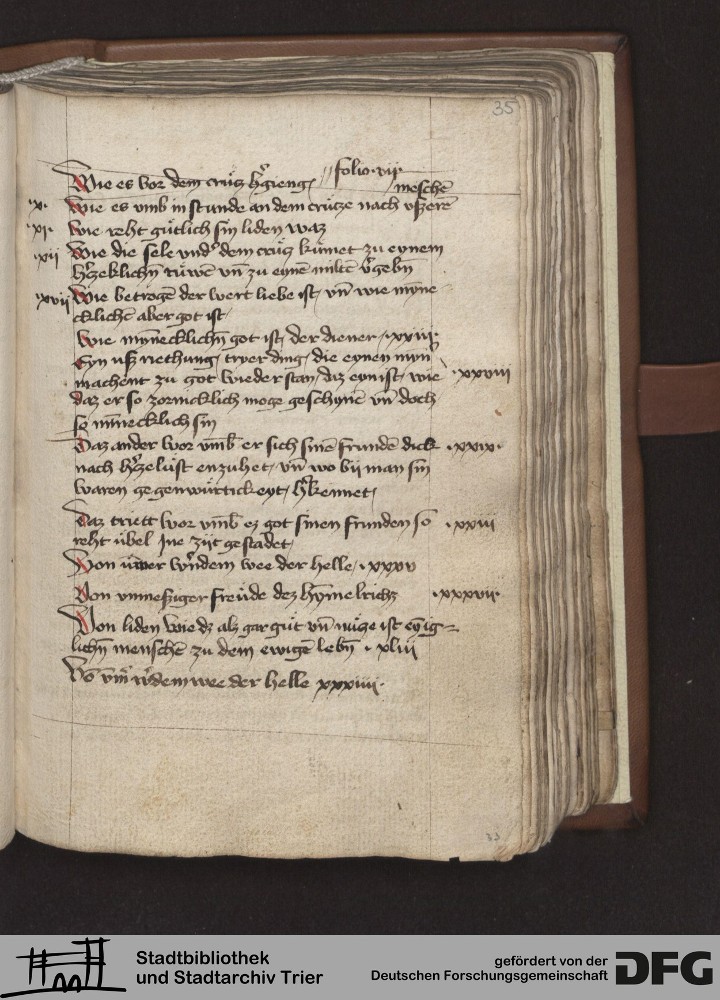 35
Wie es vor dem crútz hˀgieng // folio · vij ·
· x · Wie es vmb in stunde an dem crútze nach vßerē meschē
· xi · Wie reht gútlich sin liden waz
· xij Wie die sele vndˀ dem crútz kúmet zu eynem
hˀtzeklichñ rúwē vñ zu eynē miltē vˀgebñ
· xvij Wie betrogē der wert liebe ist / vñ wie mÿne
cklichē aber got ist /
Wie mÿnecklichñ got ist / der diener / · xxiij ·
Eyn vß riethung / tryer ding / die eynen mÿn
machent zu got wieder stan / diz eyn ist / wie · xxviij
daz er so zornicklich moge geschynē vñ doch
so mÿnecklich sin
Daz ander wor vmb er sich sinē frundē dick · xxix ·
nach hˀtzelust enzuhet / vñ wo bij man sin
waren gegenwúrtickeyt / hˀkennet /
Daz triett wor vmb ez got sinen frunden so · xxiij
reht úbel Jne zijt gestadet /
Von úmer wˀndem wee der helle / · xxxv
Von vnmeßiger freúde dez hÿmelrichs · xxxvij ·
Von liden wie dz alz gar gút vñ núcze ist
lichñ menschē zu dem ewigē lebñ · xliij
Vō vm̄ˀ wˀdem wee der helle xxxiiij ·
Stadtbibliothek
und Stadtarchiv Trier
gefördert von der
Deutschen Forschungsgemeinschaft
DFG